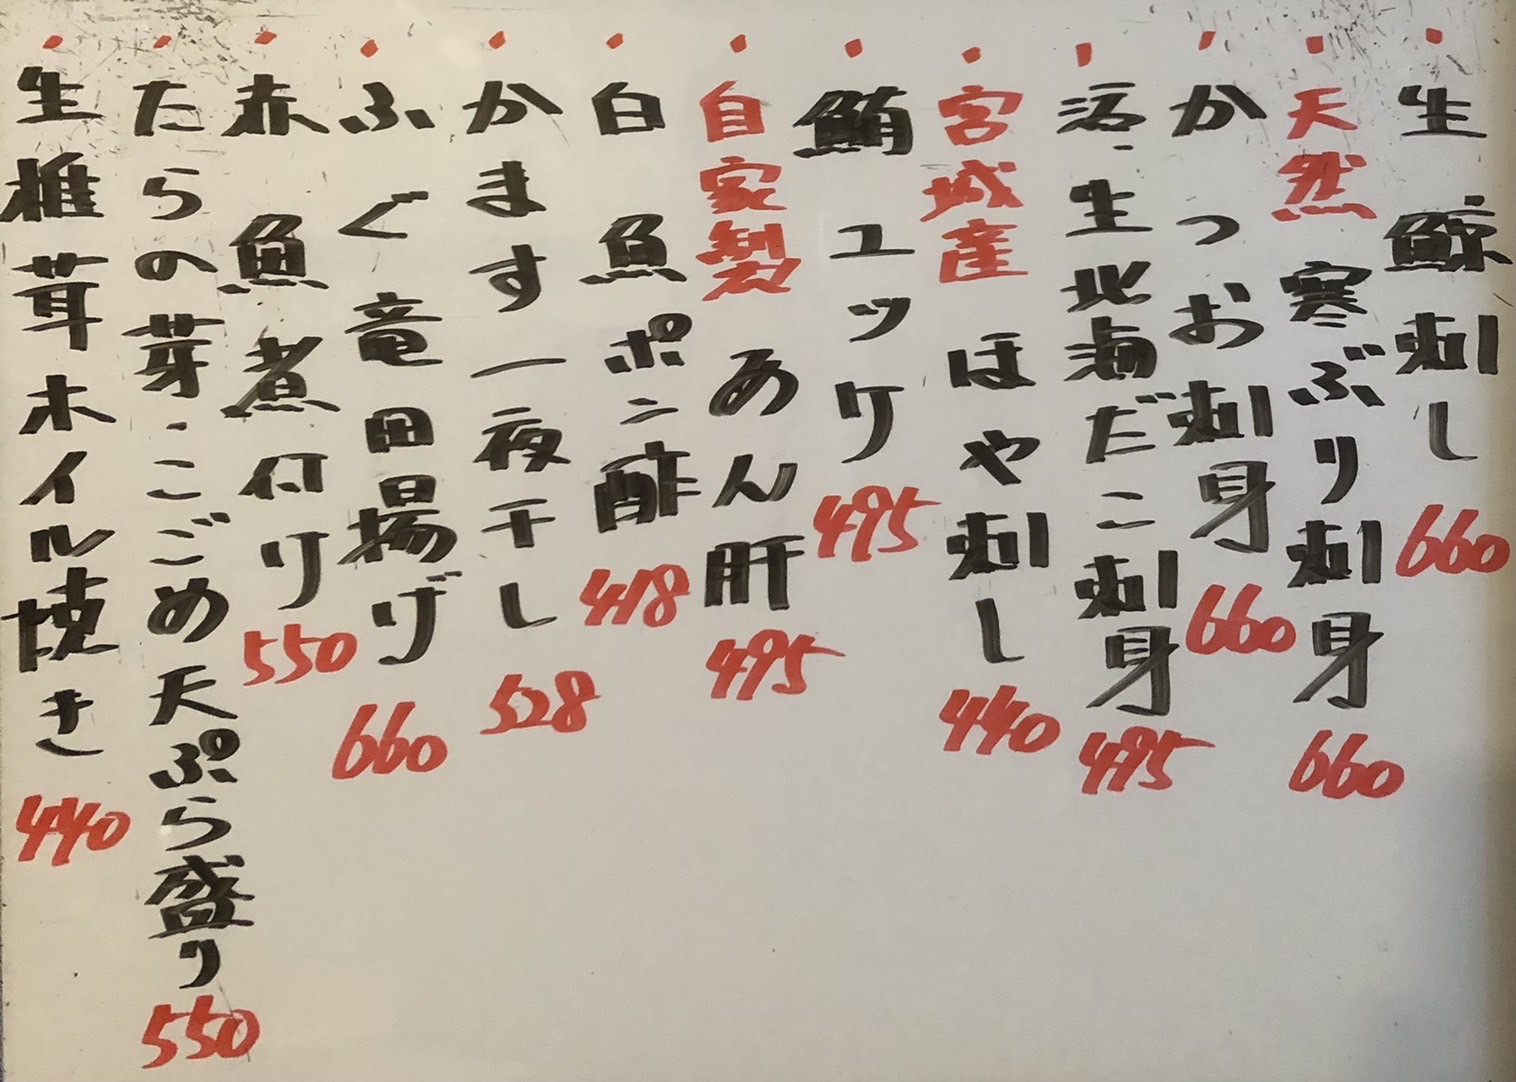 ・生鯨刺し 660
・天然 寒ぶり刺身 660
・かつお刺身 660
・活・生北海だこ刺身 495
・宮城産 ほや刺し 440
・鮪ユッケ 495
・自家製 あん肝 495
・白魚ポン酢 418
・かます一夜干し 528
・ふぐ竜田揚げ 660
・赤魚煮付け 550
・たらの芽・こごめ天ぷら盛り 550
・生椎茸ホイル焼き 440